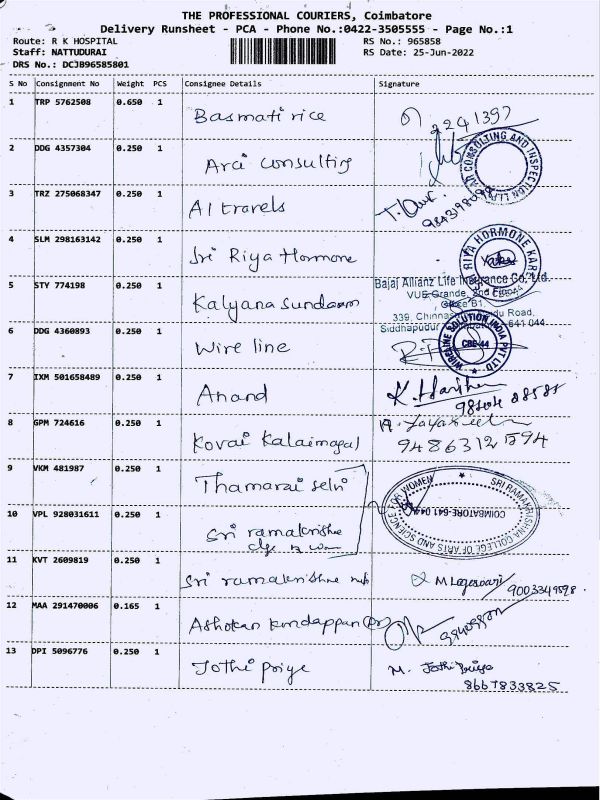 THE PROFESSIONAL COURIERS, Coimbatore
Delivery Runsheet - PCA - Phone No.:0422-3505555 - Page No.:1
Route: R K HOSPITAL
RS No.: 965858
Staff: NATTUDURAI
RS Date: 25-Jun-2022
DRS No.: DCJB96585801
S No Consignment No Weight PCS Consignee Details Signature
1 TRP 5762508 0.650 1 Basmati rice
2241397
2 DDG 4357304 0.250 1 Arci consulting
CONSULTING AND INSPECTION LLP
3 TRZ 275068347 0.250 1 A1 travels
9843198098
4 SLM 298163142 0.250 1 Sri Riya Hormone
RIYA HORMONE
5 STY 774198 0.250 1 Kalyana Sundaram
Bajaj Allianz Life Insurance Co. Ltd.
VUS Grande, 2nd
339, Road,
Siddhapudur 641 044
6 DDG 4360893 0.250 1 Wire line
WIRELINE SOLUTION INDIA PVT LTD
CBE-44
7 IXM 501658489 0.250 1 Anand
K. Harshen
8 GPM 724616 0.250 1 Kovai Kalaimagal
9486312594
9 VKM 481987 0.250 1 Thamarai selvi
SRI RAMAKRISHNA COLLEGE OF ARTS AND SCIENCE FOR WOMEN
COIMBATORE-641 044
10 VPL 928031611 0.250 1 Sri ramakrishna
clge
11 KVT 2609819 0.250 1 Sri ramakrishna
M Logeswari
9003349598
12 MAA 291470006 0.165 1 Ashokan kondappan (Dr)
13 DPI 5096776 0.250 1 Jothi priya
M. Jothi Priya
8667833825